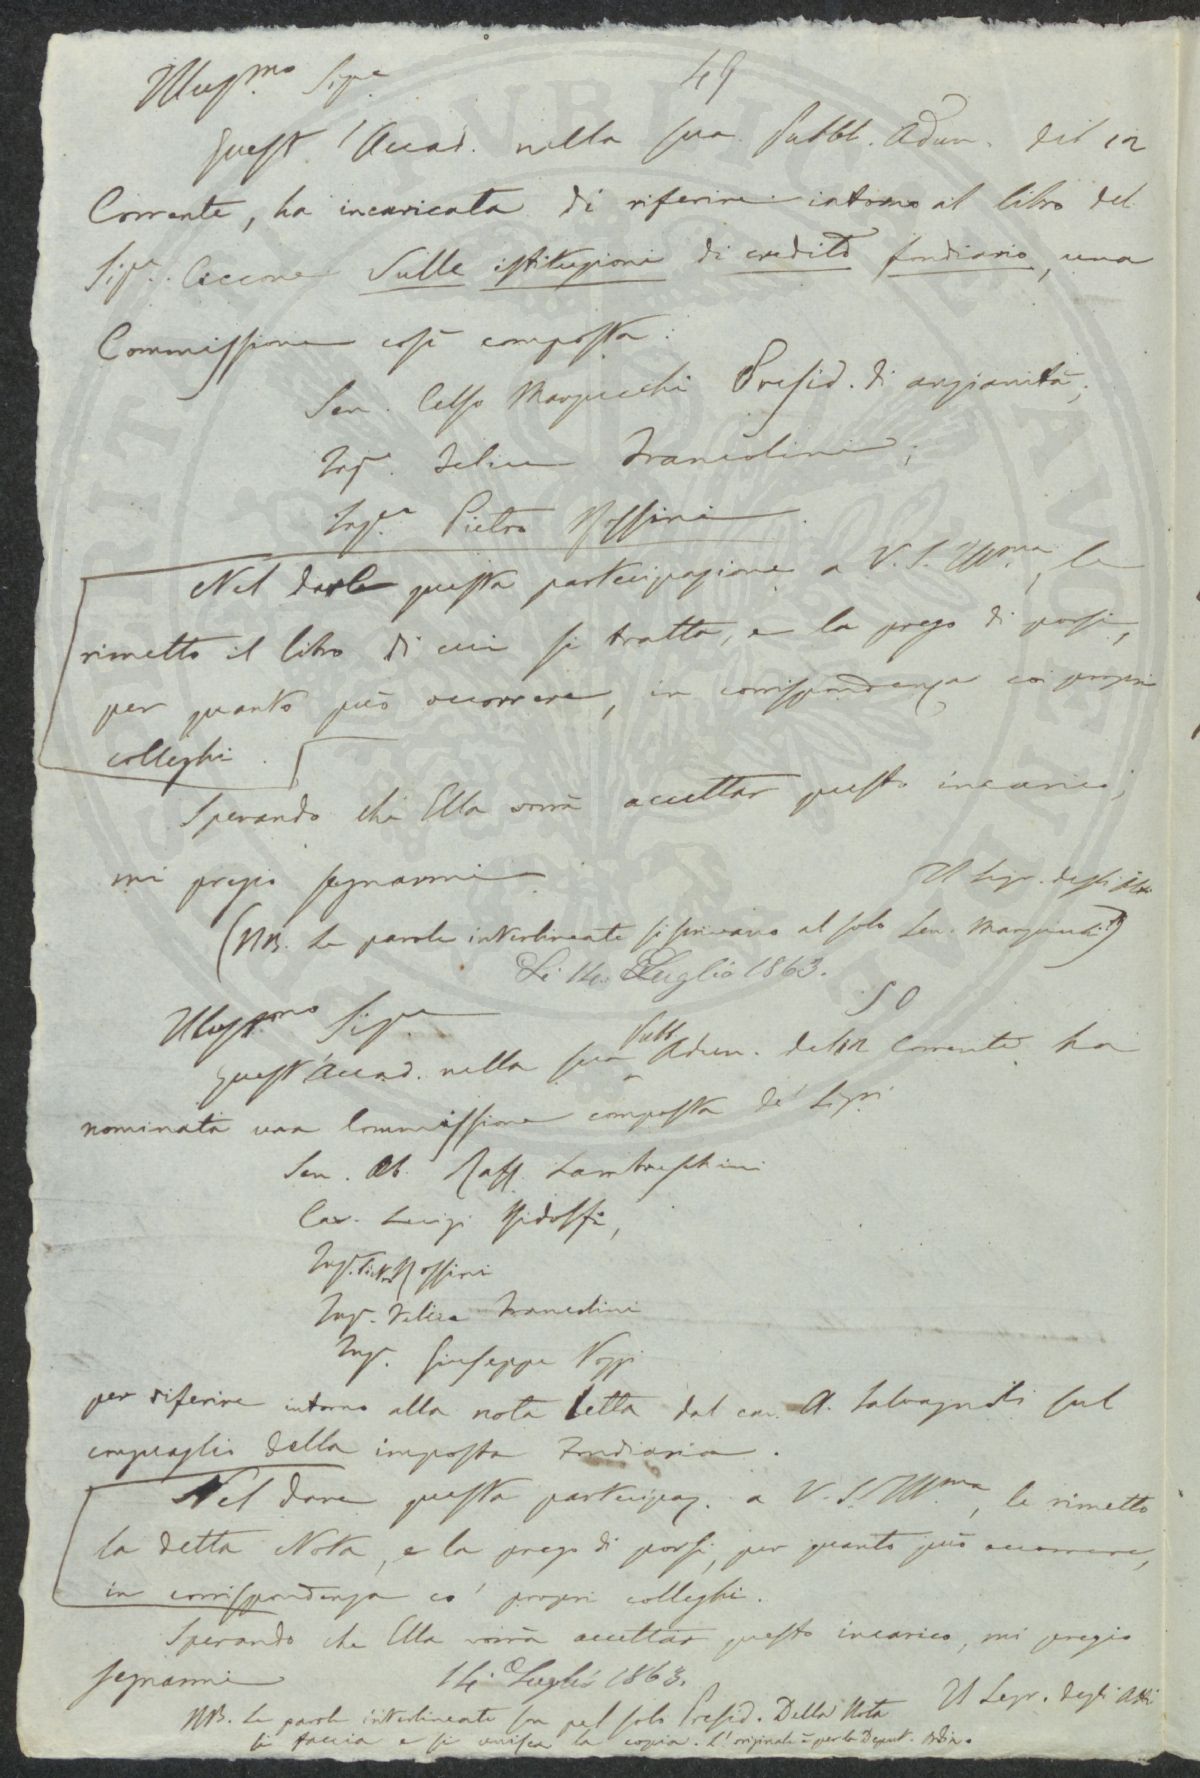 Illus.mo Sig.re 49
Quest'Accad. nella sua Pubbl. Adun. del 12
Corrente, ha incaricata di riferire intorno al libro del
Sig.r Ciccone Sulle istituzioni di credito fondiario, una
Commissione così composta:
Sen. Celso Marzucchi Presid. di anzianità;
Ing.r Felice Francolini;
Ing.re Pietro Rossini.
Nel darle questa partecipazione a V. S. Ill.ma, le
rimetto il libro di cui si tratta, e la prego di porsi,
per quanto può occorrere, in corrispondenza coi propri
colleghi.
Sperando che Ella vorrà accettar questo incarico,
mi pregio segnarmi
Il Segr. degli Atti
(NB. Le parole interlineate si scrivano al solo Sen. Marzucchi)
Li 14. Luglio 1863.
50
Illus.mo Sig.re
Quest'Accad. nella sua Pubb. Adun. del 12 Corrente ha
nominata una Commissione composta de' Sigri
Sen. Ab. Raff. Lambruschini
Cav. Luigi Ridolfi,
Ing.r Pietro Rossini
Ing.r Felice Francolini
Ing.r Giuseppe Pozzi
per riferire intorno alla nota letta dal cav. A. Salvagnoli sul
conguaglio della imposta Fondiaria.
Nel dare questa partecipaz. a V. S. Ill.ma, le rimetto
la detta Nota, e la prego di porsi, per quanto può occorrere,
in corrispondenza co' propri colleghi.
Sperando che Ella vorrà accettar questo incarico, mi pregio
segnarmi 14. Luglio 1863.
Il Segr. degli Atti
NB. Le parole interlineate son pel solo Presid. Della Nota
si faccia e si unisca la copia. L'originale è per la Deput. Ordin.